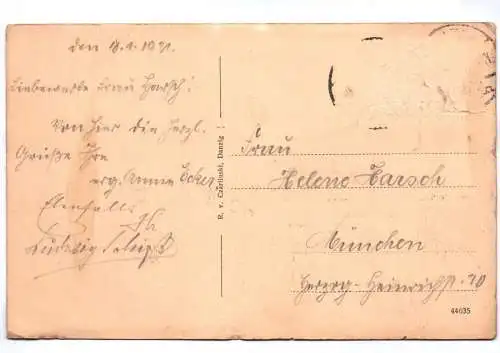 den 18.1.1921.
Liebwerte Frau Harsch!
Von hier die herzl.
Grüße Ihre
erg. Anna
Ebenfalls
Ihr
Ludwig
R. v. Czarlinski, Danzig
Frau
Helene Harsch
München
Herzog-Heinrichstr. 10
44635